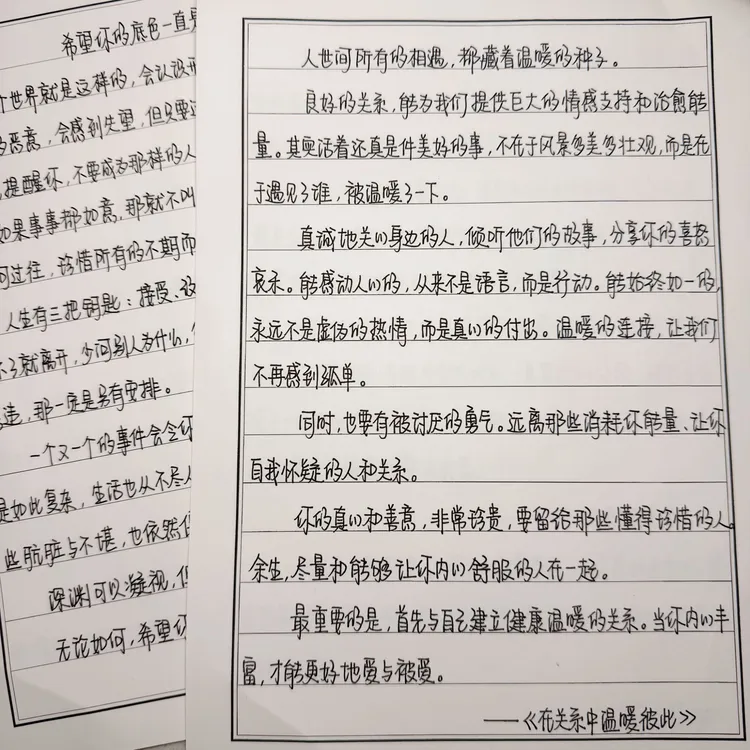 希望你的底色一直是
个世界就是这样的，会认设
的恶意，会感到失望，但只要
提醒你，不要成为那样的人
如果事事都如意，那就不叫
问过往，珍惜所有的不期而
人生有三把钥匙：接受、改
不了就离开，少问别人为什么，
造，那一定是另有安排。
一个又一个的事件会令你
是如此复杂，生活也从不尽人
些肮脏与不堪，也依然
深渊可以凝视，但
无论如何，希望你
人世间所有的相遇，都藏着温暖的种子。
良好的关系，能为我们提供巨大的情感支持和治愈能
量。其实活着还真是件美好的事，不在于风景多美多壮观，而是在
于遇见了谁，被温暖了一下。
真诚地关心身边的人，倾听他们的故事，分享你的喜怒
哀乐。能感动人心的，从来不是语言，而是行动。能始终如一的，
永远不是虚伪的热情，而是真心的付出。温暖的连接，让我们
不再感到孤单。
同时，也要有被讨厌的勇气。远离那些消耗你能量、让你
自我怀疑的人和关系。
你的真心和善意，非常珍贵，要留给那些懂得珍惜的人。
余生，尽量和能够让你内心舒服的人在一起。
最重要的是，首先与自己建立健康温暖的关系。当你内心丰
富，才能更好地爱与被爱。
——《在关系中温暖彼此》